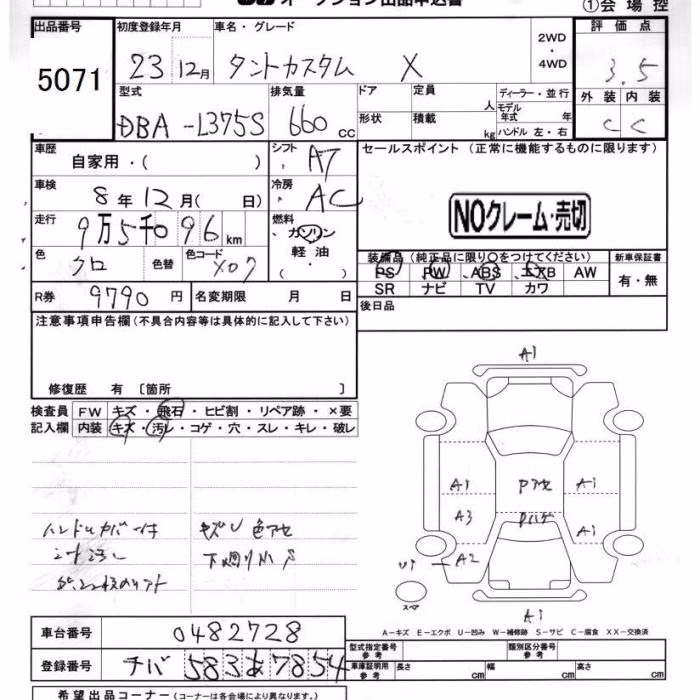 オークション出品申込書 ①会場控
出品番号 初度登録年月 車名・グレード 2WD・4WD 評価点
5071 23 12月 タントカスタム X 3.5
型式 排気量 ドア 定員 人 ディーラー・並行 外装 内装
DBA-L375S 660cc 形状 積載 kg モデル年式 年 ハンドル 左・右 C C
車歴 自家用・( ) シフト AT セールスポイント (正常に機能するものに限ります)
車検 8年12月( 日) 冷房 AC
NOクレーム・売切
走行 9万5千096km 燃料 ガソリン・軽油
色 クロ 色替 色コード X07
装備品 (純正品に限り○をつけてください) 新車保証書
PS PW ABS エアB AW 有・無
SR ナビ TV カワ
R券 9790円 名変期限 月 日 後日品
注意事項申告欄 (不具合内容等は具体的に記入して下さい)
修復歴 有 [箇所 ]
検査員 FW キズ・飛石・ヒビ割・リペア跡・×要
記入欄 内装 キズ・汚レ・コゲ・穴・スレ・キレ・破レ
A1
A1 Pアセ A1
A3 Pハゲ A1
A2
ハンドルカバー付
キズU 色アセ
下廻り小S
スペア
A1
A-キズ E-エクボ U-凹み W-補修跡 S-サビ C-腐食 XX-交換済
車台番号 0482728
型式指定番号 類別区分番号
登録番号 チバ 583あ7854
車庫証明用参考 長さ cm 幅 cm 高さ cm
希望出品コーナー (コーナーは各会場により異なります。)